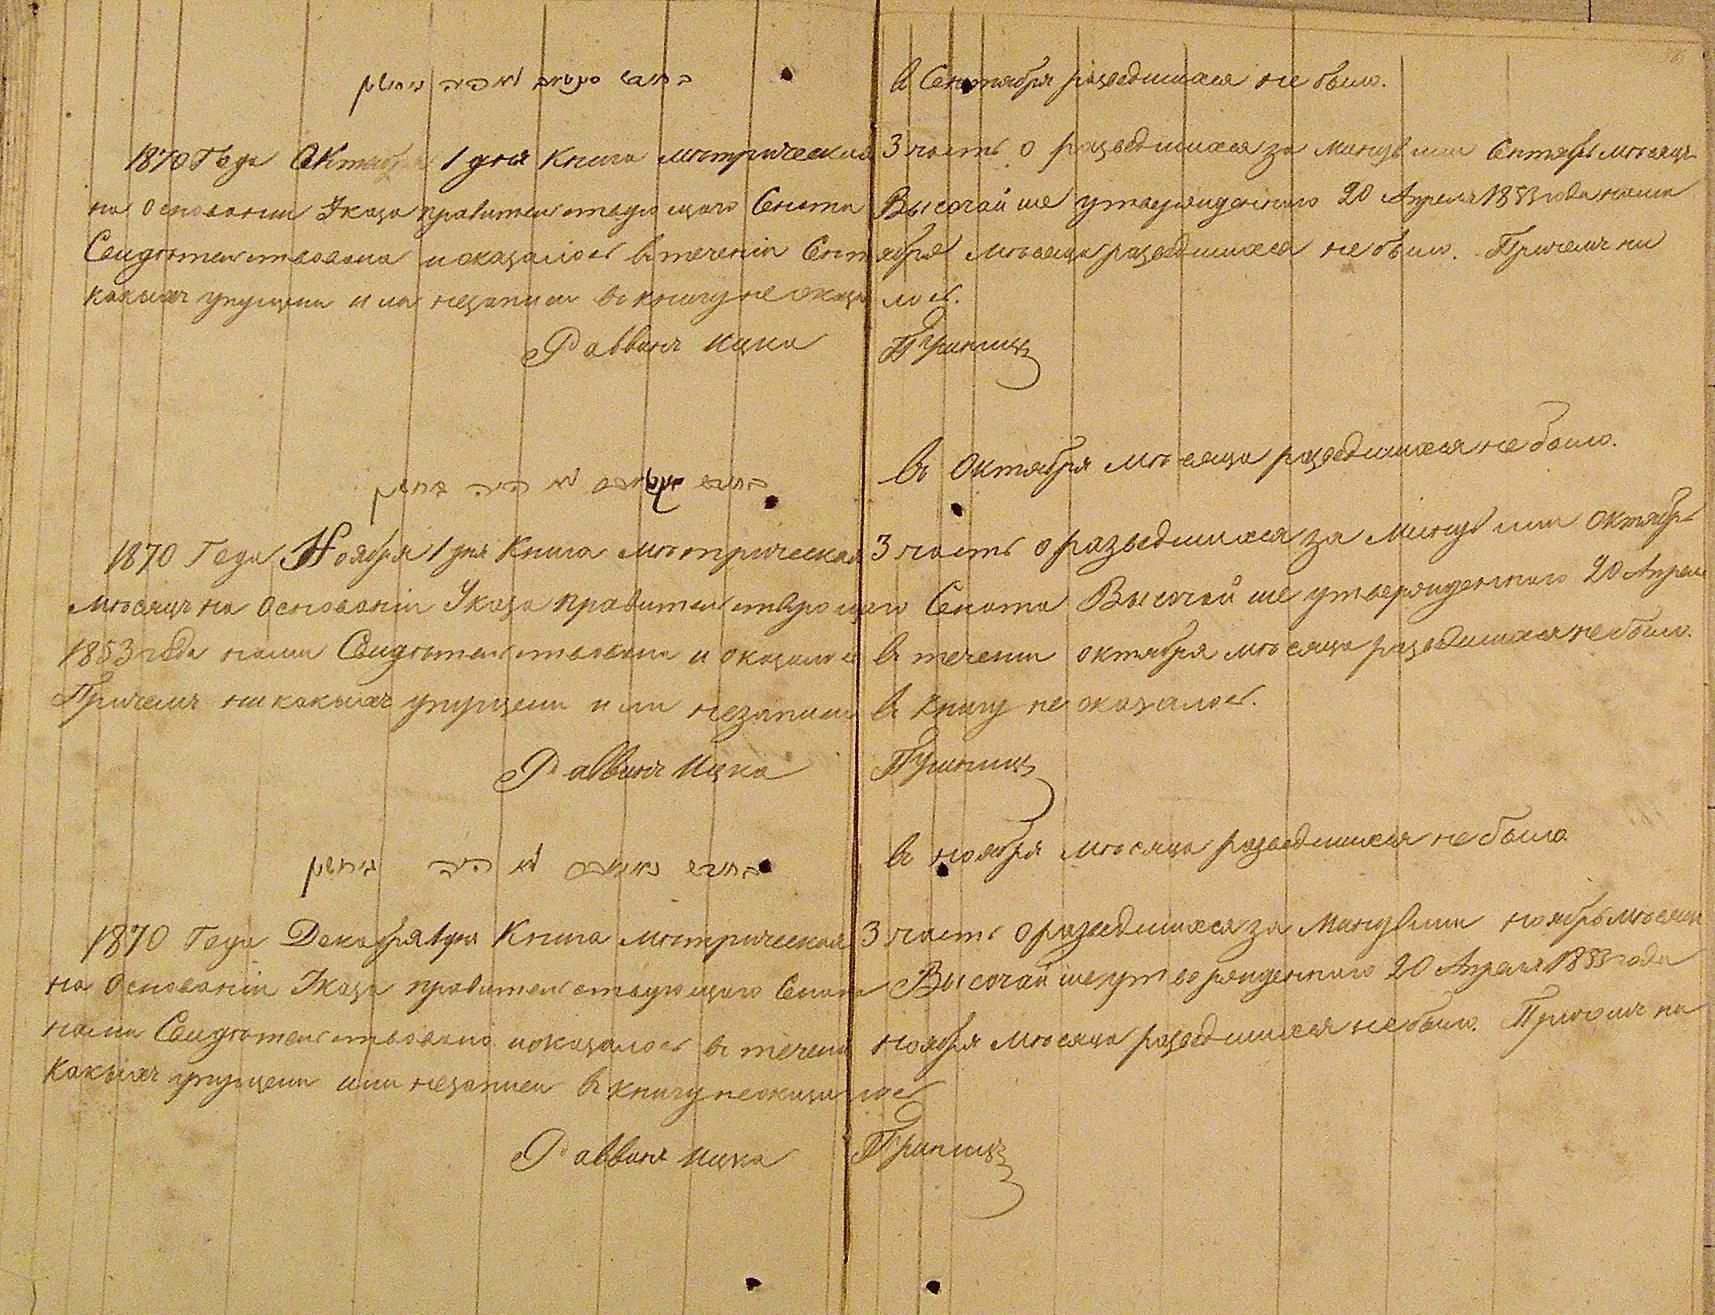 בחדש סעטיאב לא היה גירושין
в Сентября разведшихся не было.
1870 Года Октября 1 дня Книга метрическая 3 часть о разведшихся за минувшии Сентябрь месяцъ
на основании Указа правительствующаго Сената Высочайше утвержденнаго 20 Апреля 1853 года нами
Свидетельствована и оказалось в течении Сентября месяца разведшихся не было. Причемъ ни
какихъ упущени или незаписи в книгу не оказалось.
Раввинъ Ицка Граница
בחדש אקטיאבר לא היה גירושין
в Октября месяца разведшихся не было.
1870 Года Ноября 1 дня Книга метрическая 3 часть о разведшихся за минувшии Октябрь
месяцъ на основаніи Указа правительствующаго Сената Высочайше утвержденнаго 20 Апреля
1853 года нами Свидетельствована и оказалось в течении октября месяца разведшихся не было.
Причемъ никакихъ упущени или незаписи в книгу не оказалось.
Раввинъ Ицка Граница
בחדש נאיאבר לא היה גירושין
в ноября месяца разведшихся не было
1870 Года Декабря 1 дня Книга метрическая 3 часть о разведшихся за минувшии ноябрь месяцъ
на основаніи Указа правительствующаго Сената Высочайше утвержденнаго 20 Апреля 1853 года
нами Свидетельствована и оказалось в течени ноября месяца разведшихся не было. Причемъ ни
какихъ упущени или незаписи в книгу не оказалось
Раввинъ Ицка Граница